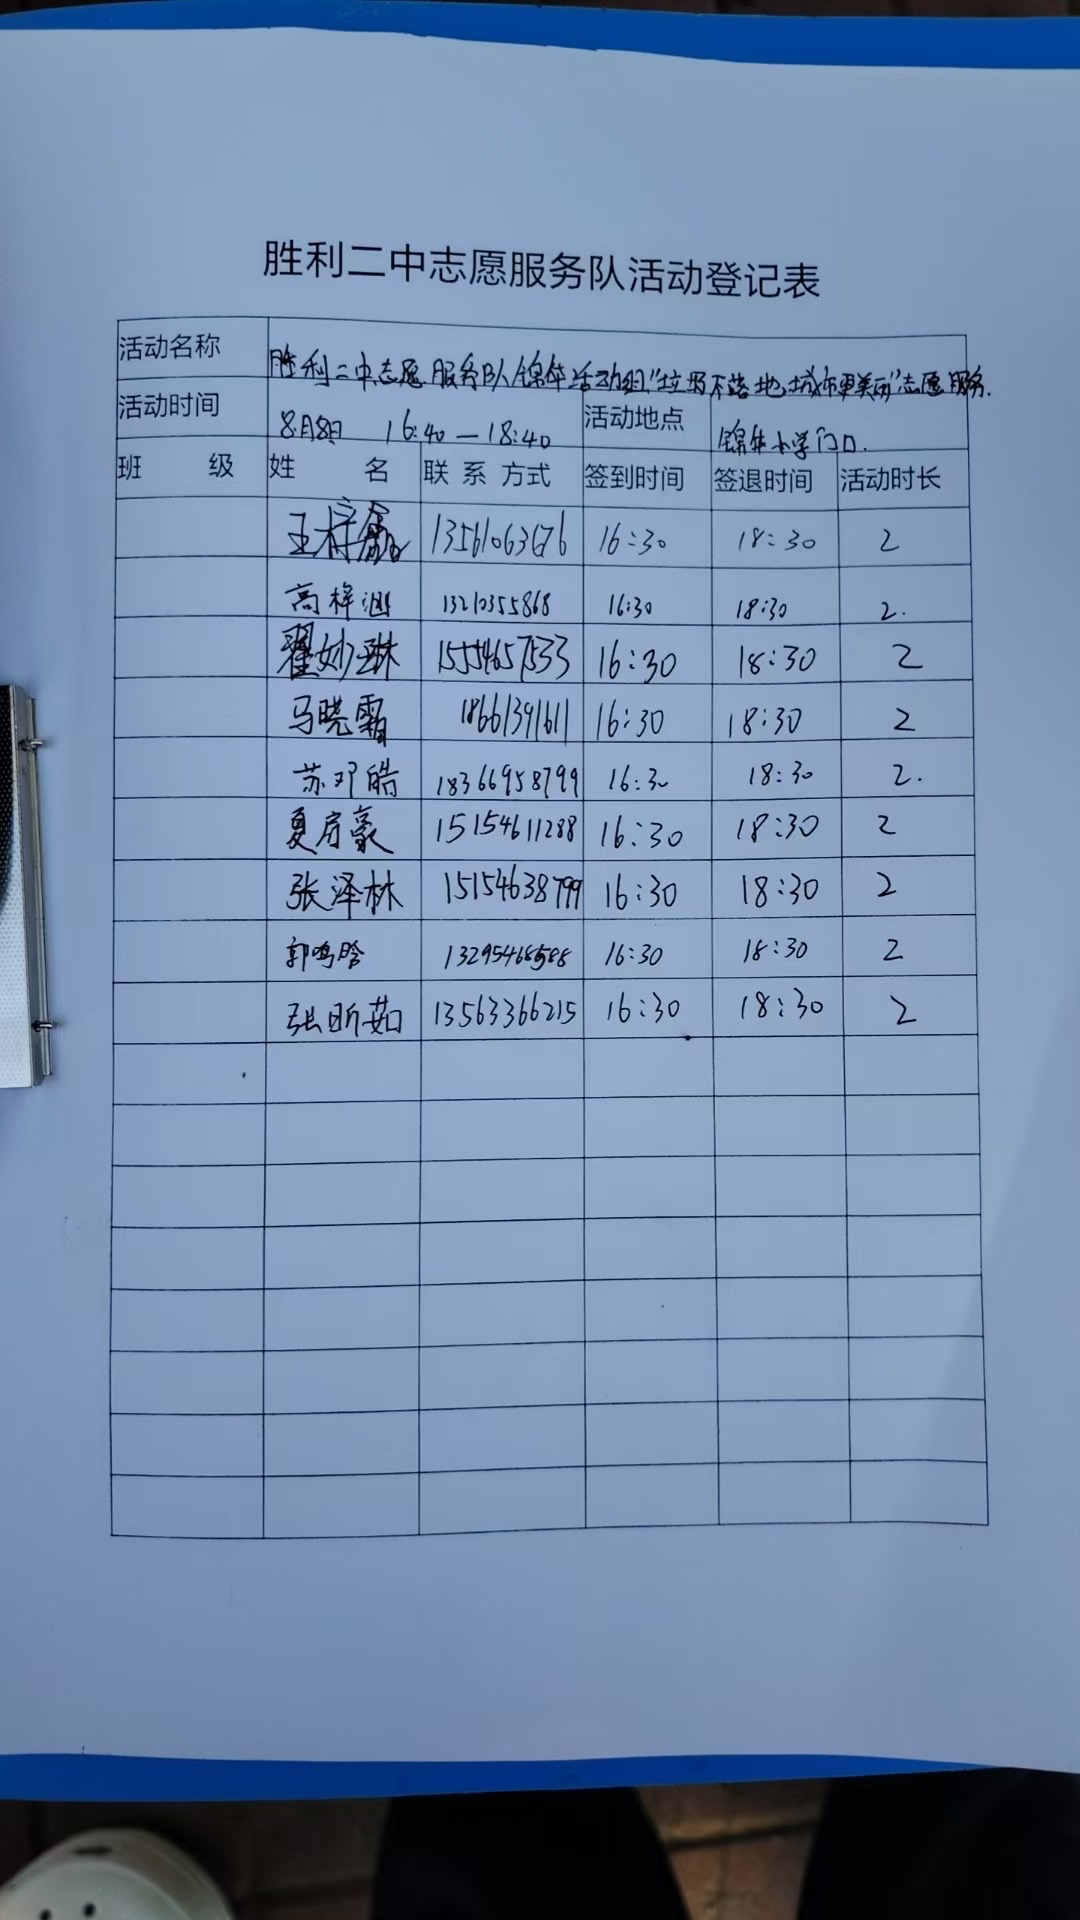 胜利二中志愿服务队活动登记表
活动名称 胜利二中志愿服务队锦华活动组"垃圾不落地,城市更美丽"志愿服务.
活动时间 8月8日 16:40—18:40 活动地点 锦华小学门口.
班 级 姓 名 联系方式 签到时间 签退时间 活动时长
王梓 13561063676 16:30 18:30 2
高梓涵 13210355868 16:30 18:30 2.
翟妙琳 15554657533 16:30 18:30 2
马晓霜 18661391611 16:30 18:30 2
苏邓皓 18366958799 16:30 18:30 2.
夏豪 15154611288 16:30 18:30 2
张泽林 15154638799 16:30 18:30 2
郭鸣晗 16:30 18:30 2
张昕茹 13563366215 16:30 18:30 2